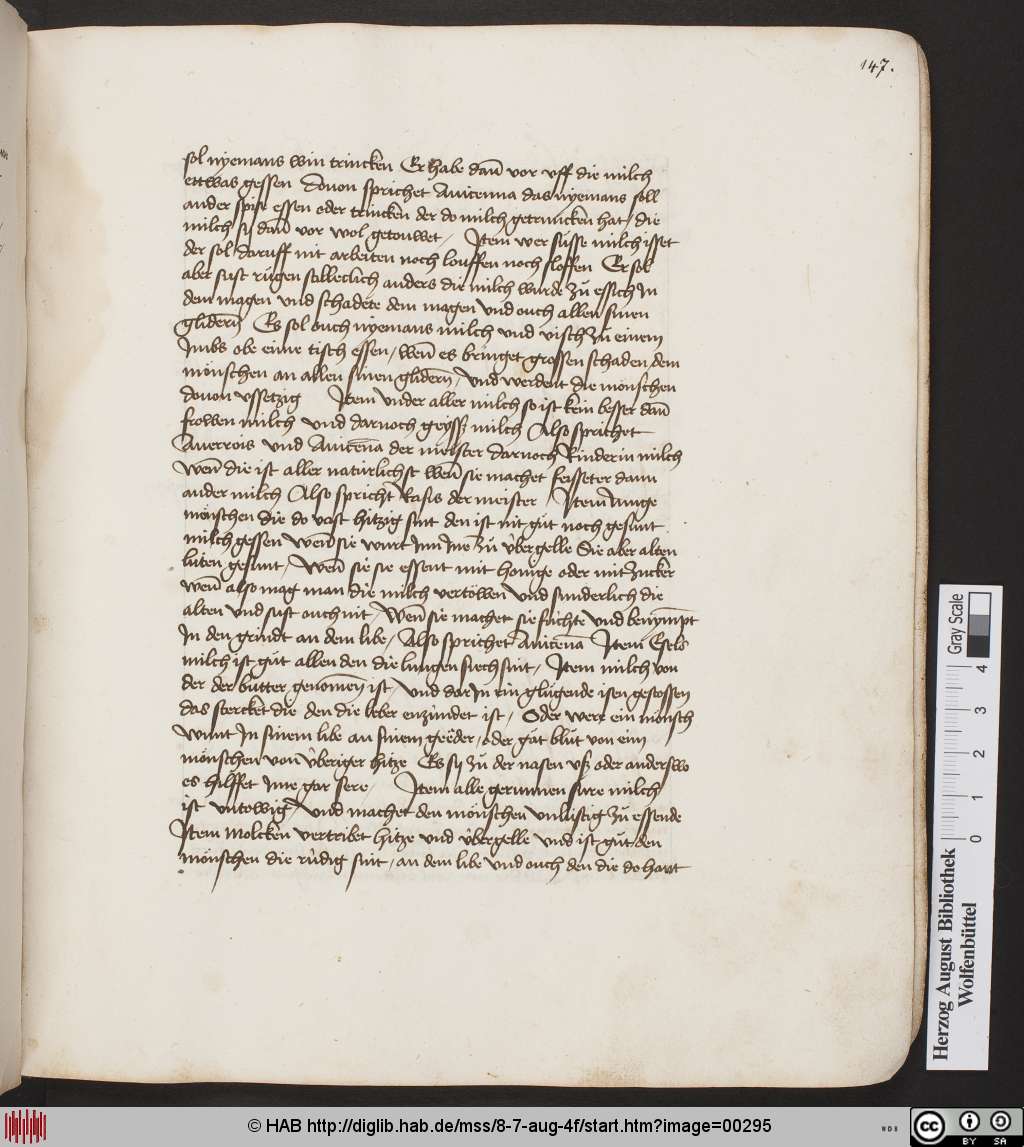 147.
sol nyemans win trincken Er habe dañ vor vff die milch
ettwas gessen Dovon sprichet Auicenna das nyemans soll
ander spise essen oder trincken der do milch getruncken hat / die
milch sy dañ vor wol getouwet / Item wer süsse milch isset
der sol daruff nit arbeiten noch louffen noch sloffen Er sol
aber sust rügen stilleclich anders die milch wurde zü essich In
dem magen und schadete dem magen Vnd ouch allen sinen
glidern̄ Es sol ouch nyemans milch vnd visch zü einem
Imbs obe eime tisch essen / weñ es bringet grossen schaden dem
mönschen an allen sinen glidern̄ / Vnd werdent die mönschen
dovon vssetzig Item vnder aller milch so ist kein besser dañ
frowen milch vnd darnoch geyss milch Also sprichet
Auerrois vnd Auicēna der meister darnoch Rinderin milch
Weñ die ist aller natürlichst weñ sie machet feisseter dann
ander milch Also spricht Rasis der meister / Item Junge
mönschen die do vast hitzig sint den ist nit güt noch gesunt
milch gessen weñ sie wurt Inn Ine zü übergelle Sie aber alten
lüten gesunt / Weñ sie sie essent mit honige oder mit zucker
weñ also mag man die milch vertöwen Vnd sunderlich die
alten vnd sust ouch nit / Weñ sie machet sie füchte vnd benympt
In den grindt an dem libe / Also sprichet Auicēna Item Esels
milch ist güt allen den die lungen siech sint / Item milch von
der der butter genomen ist / Vnd dar In ein glügende isen gestossen
das stercket die den die leber enzündet ist / Oder were ein mönsch
wunt In sinem libe an sinem geeder / oder gat blüt von eim
mönschen von überiger hitze Es sy zü der nasen vß oder anderswo
es hilffet Ime gar sere / Item alle gerunnen sure milch
ist vntowig / Vnd machet den mönschen vnlustig zü essende
Item Molcken vertribet hitze vnd übergelle Vnd ist güt den
mönschen die rüdig sint / an dem libe Vnd ouch den die do hant
Herzog August Bibliothek
Wolfenbüttel
Gray Scale
0 1 2 3 4
© HAB http://diglib.hab.de/mss/8-7-aug-4f/start.htm?image=00295
WDB
CC BY SA